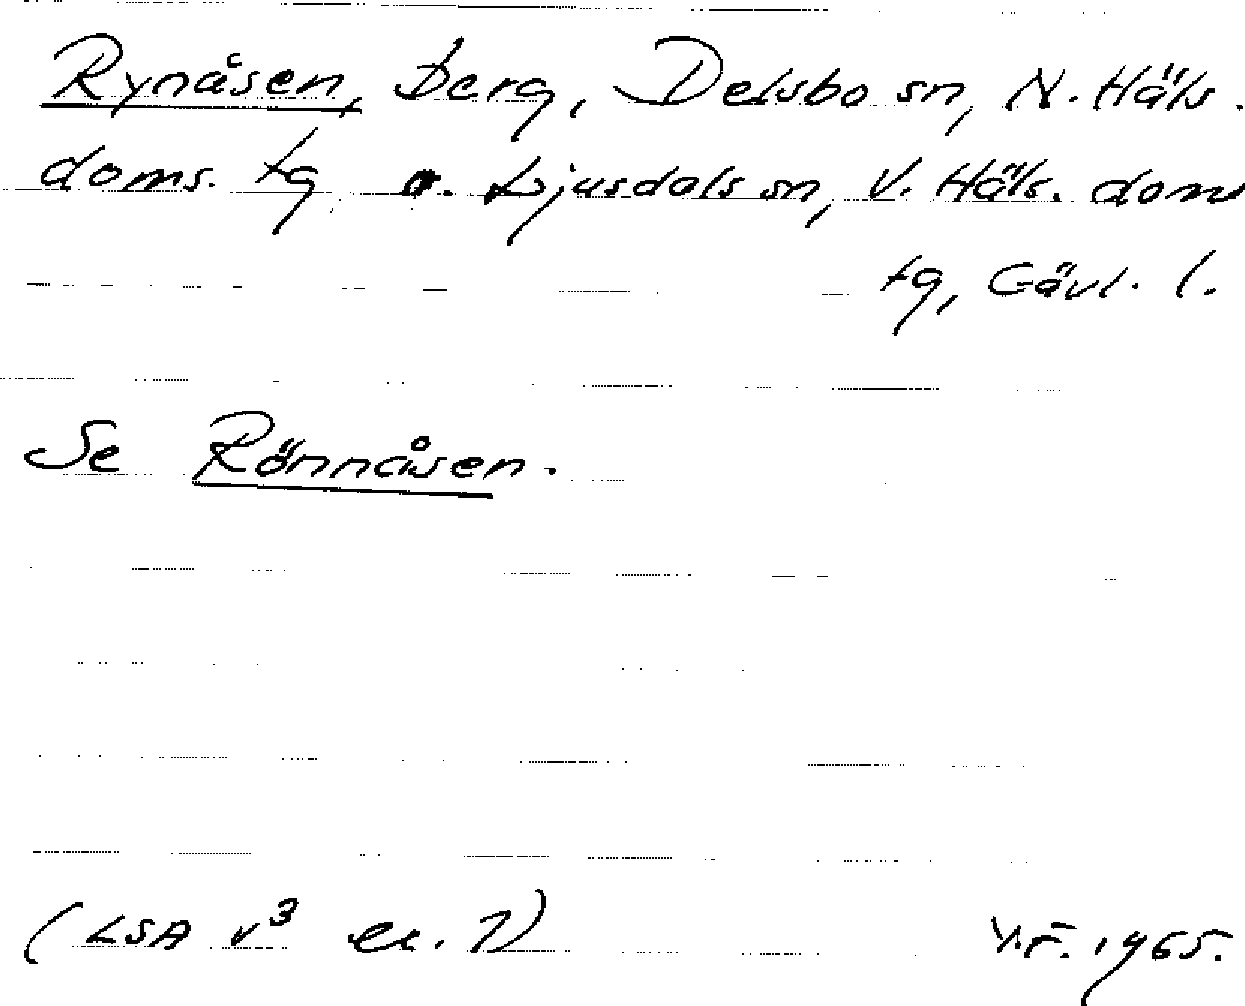 Rynåsen, berg, Delsbo sn, N. Häls.
doms. tg o. Ljusdals sn, V. Häls. doms
tg, Gävl. l.
Se Rönnåsen.
(LSA v³ ex. 2) V.F. 1965.